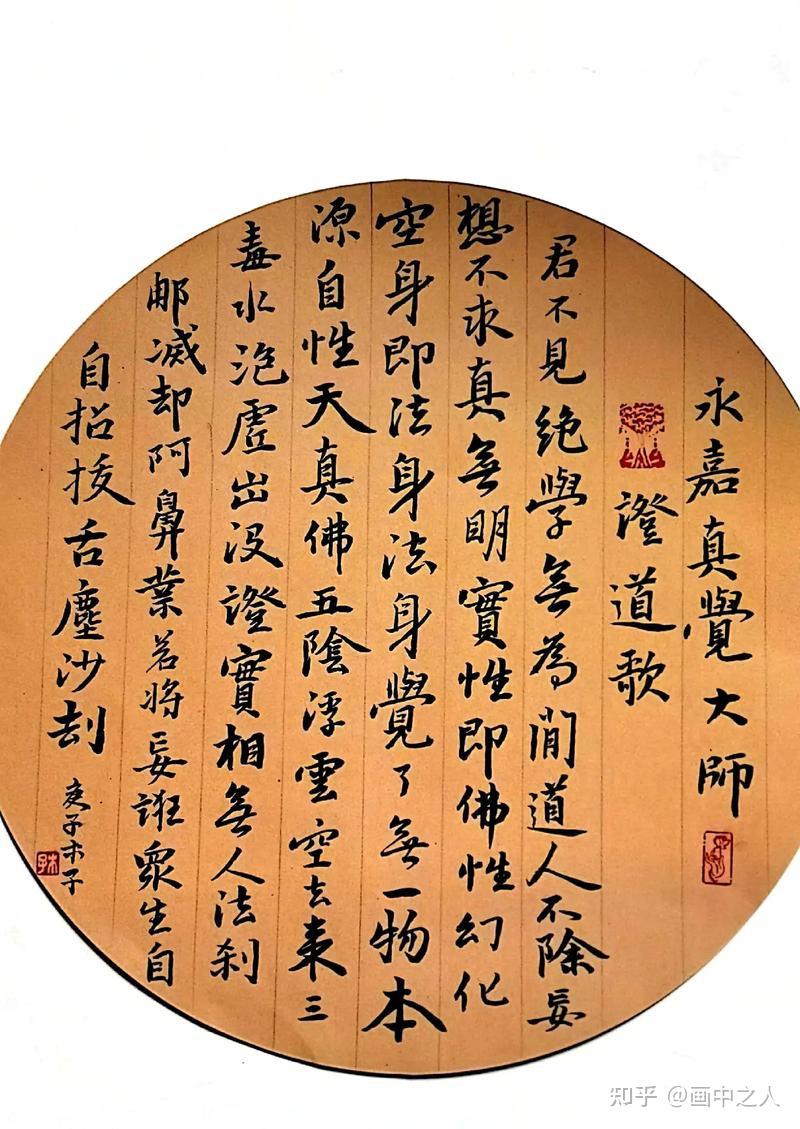 永嘉真覺大師
證道歌
君不見絕學無為閒道人不除妄
想不求真無明實性即佛性幻化
空身即法身法身覺了無一物本
源自性天真佛五陰浮雲空去來三
毒水泡虛出没證實相無人法刹
那滅却阿鼻業若将妄誑眾生自
自招拔舌塵沙刼
庚子木子
知乎 @画中之人